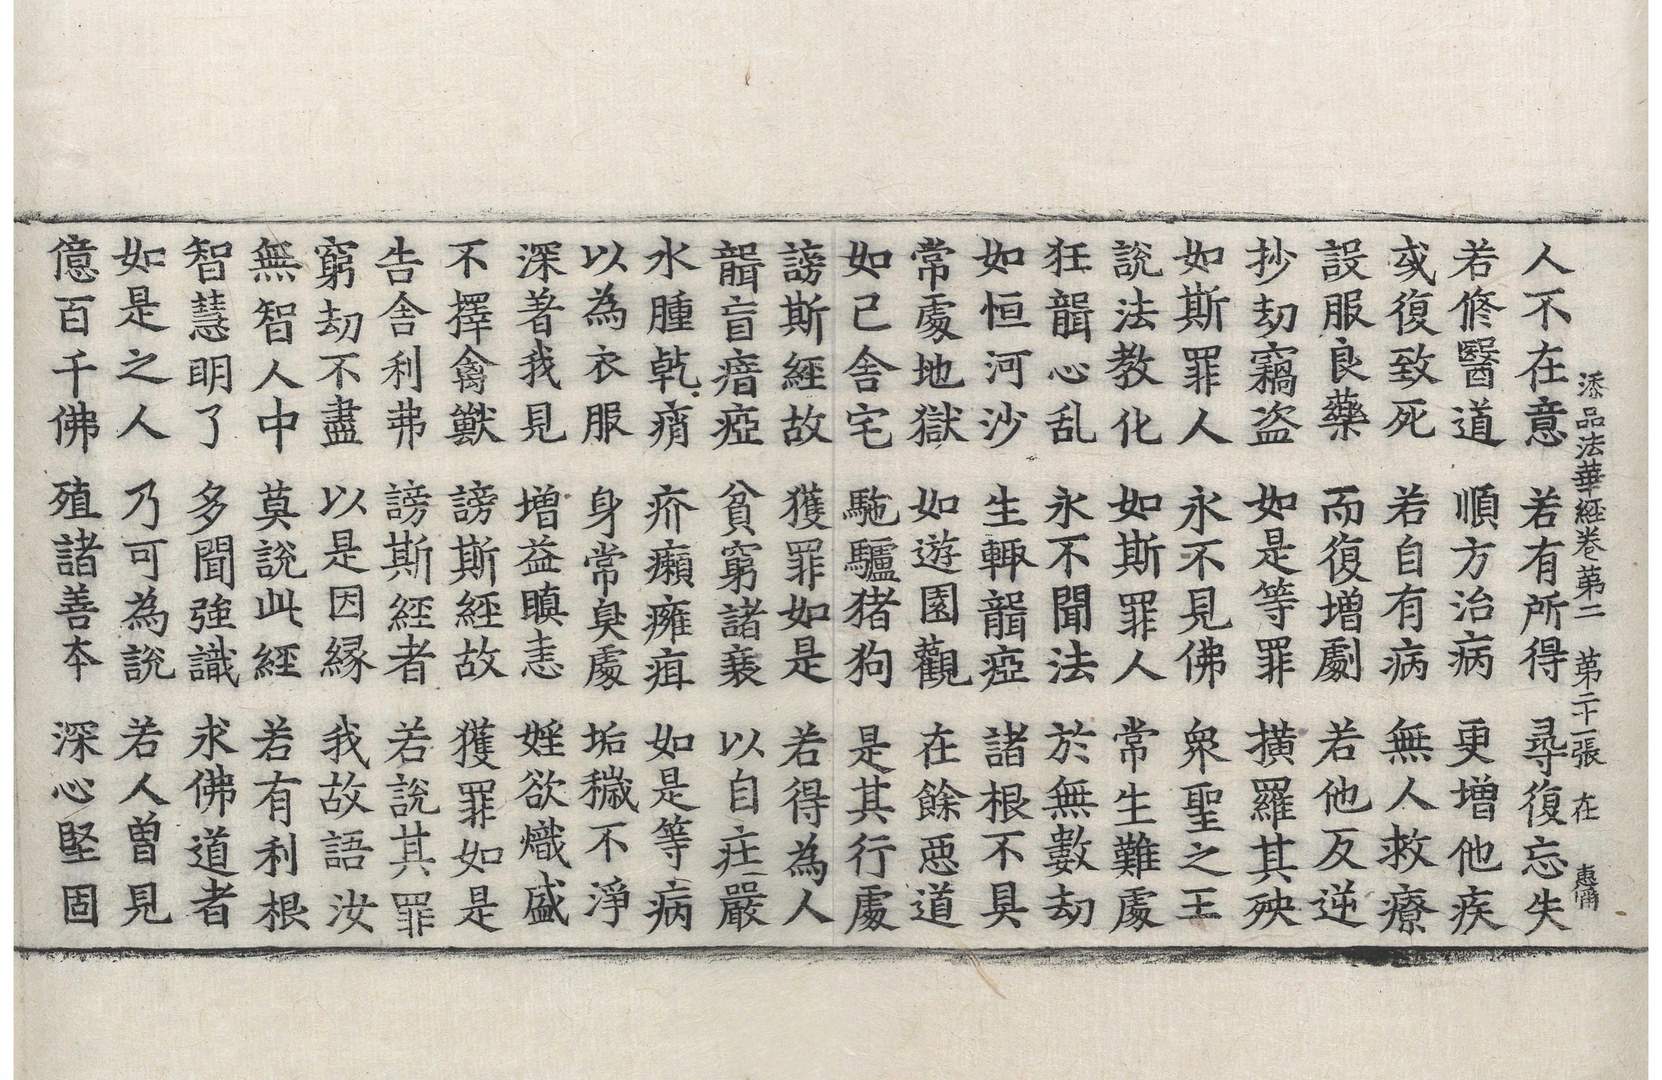 添品法華經卷第二 第二十一張 在
人不在意 若有所得 尋復忘失
若修醫道 順方治病 更增他疾
或復致死 若自有病 無人救療
設服良藥 而復增劇 若他反逆
抄劫竊盜 如是等罪 撗羅其殃
如斯罪人 永不見佛 衆聖之王
說法教化 如斯罪人 常生難處
狂聾心乱 永不聞法 於無數劫
如恒河沙 生輙聾瘂 諸根不具
常處地獄 如遊園觀 在餘惡道
如已舍宅 駞驢猪狗 是其行處
謗斯經故 獲罪如是 若得為人
聾盲瘖瘂 貧窮諸衰 以自庄嚴
水腫乾痟 疥癩癰疽 如是等病
以為衣服 身常臭處 垢穢不淨
深著我見 增益瞋恚 婬欲熾盛
不擇禽獸 謗斯經故 獲罪如是
告舍利弗 謗斯經者 若說其罪
窮劫不盡 以是因縁 我故語汝
無智人中 莫說此經 若有利根
智慧明了 多聞強識 求佛道者
如是之人 乃可為說 若人曽見
億百千佛 殖諸善本 深心堅固